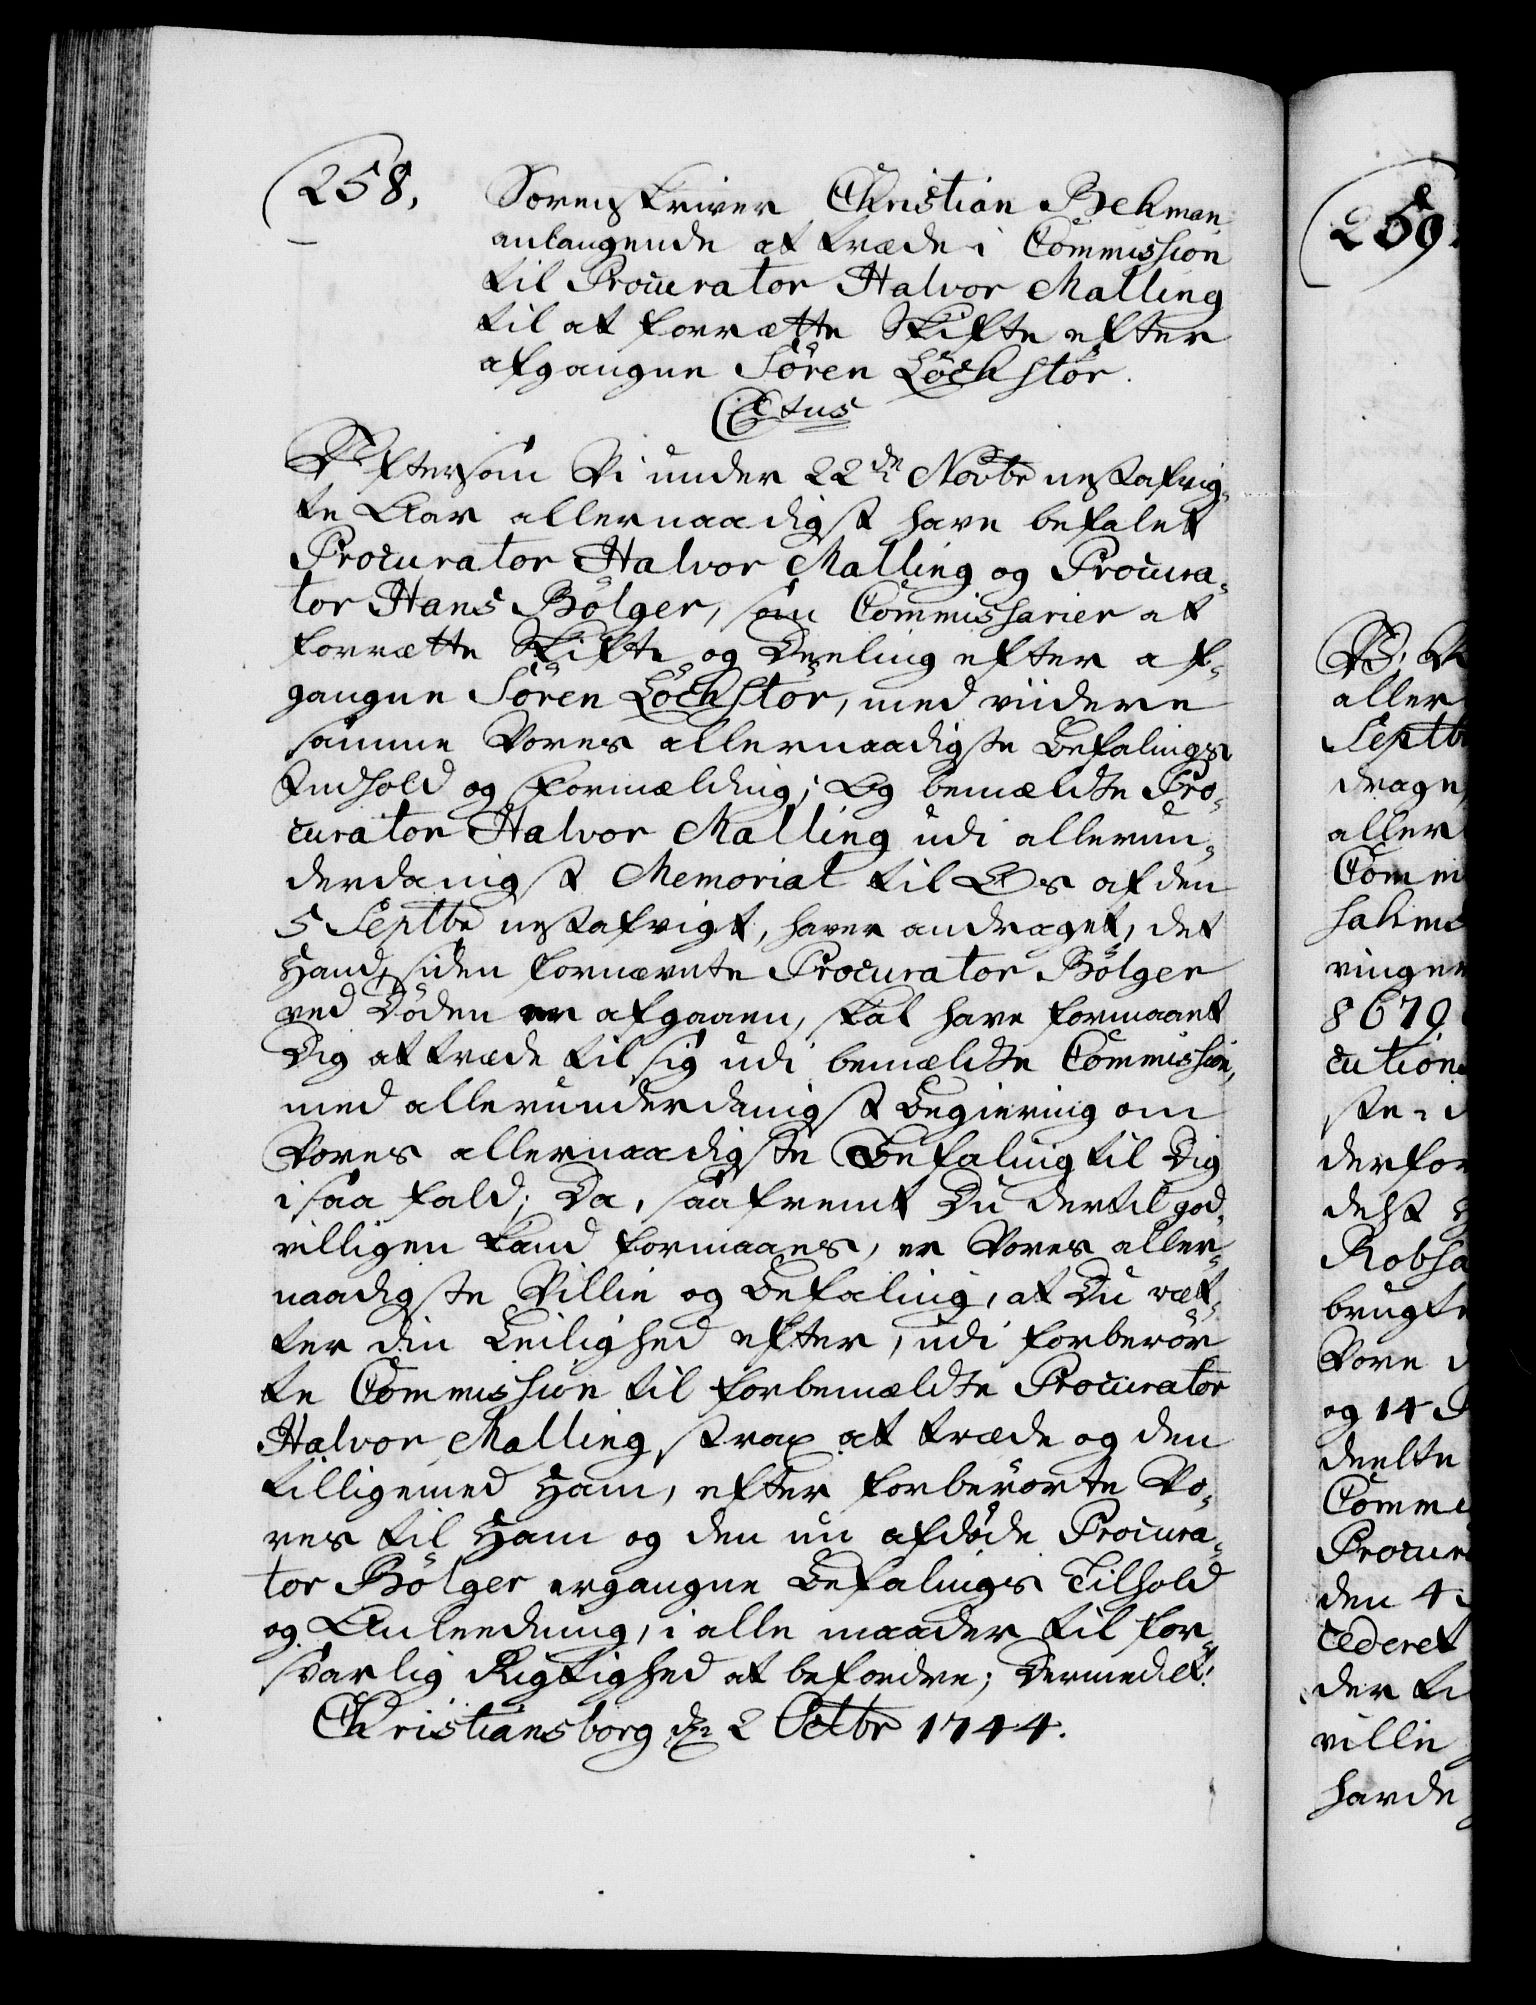 258.
Sorenskriver Christian Bekman
anlangende at træde i Commission
til Procurator Halvor Malling
til at forrætte Skifte efter
afgangne Sören Löchstör.
Ctus
Eftersom Vi under 22de Novbr nestafvig-
te Aar allernaadigst have befalet
Procurator Halvor Malling og Procura-
tor Hans Bölger, som Commissarier at
forrætte Skifte og Deeling efter af-
gangne Sören Löchstör, med viidere
samme Vores allernaadigste Befalings
Indhold og formælding; Og bemældte Pro-
curator Halvor Malling udi allerun-
derdanigst Memorial til Os af den
5 Septbr nestafvigt, haver andraget, det
Hand, siden fornævnte Procurator Bölger
ved Döden er afgaaen, skal have formaaet
Dig at træde til sig udi bemældte Commission,
med allerunderdanigst Begiering om
Vores allernaadigste Befaling til Dig
i saa fald; Da, saafremt Du dertil god-
villigen kand formaaes, er Vores aller-
naadigste Villie og Befaling, at Du ræt-
ter din Leilighed efter, udi forberör-
te Commission til forbemældte Procurator
Halvor Malling strax at træde og den
tilligemed Ham, efter forberörte Vo-
res til Ham og den nu afdöde Procura-
tor Bölger ergangne Befalings Tilhold
og Anleedning, i alle maader til for-
svarlig Rigtighed at befordre; Dermed et:
Christiansborg dn 2 Octbr 1744.
259.
aller
Septb
drage
aller
Commi
ringer
8679
cution
derfor
Robsa
brugte
Vore
og 14
deelte
Comm
Procur
den 4
cederet
der ti
villie
havde